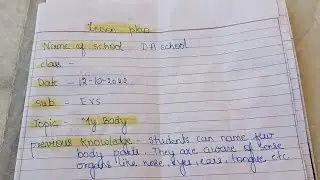 Lesson plan
Name of school - DA school
class -
Date - 12-10-2022
Sub - EVS
Topic - My Body
previous knowledge - Students can name few
body parts. They are aware of sense
organs like nose, eyes, ears, tongue, etc